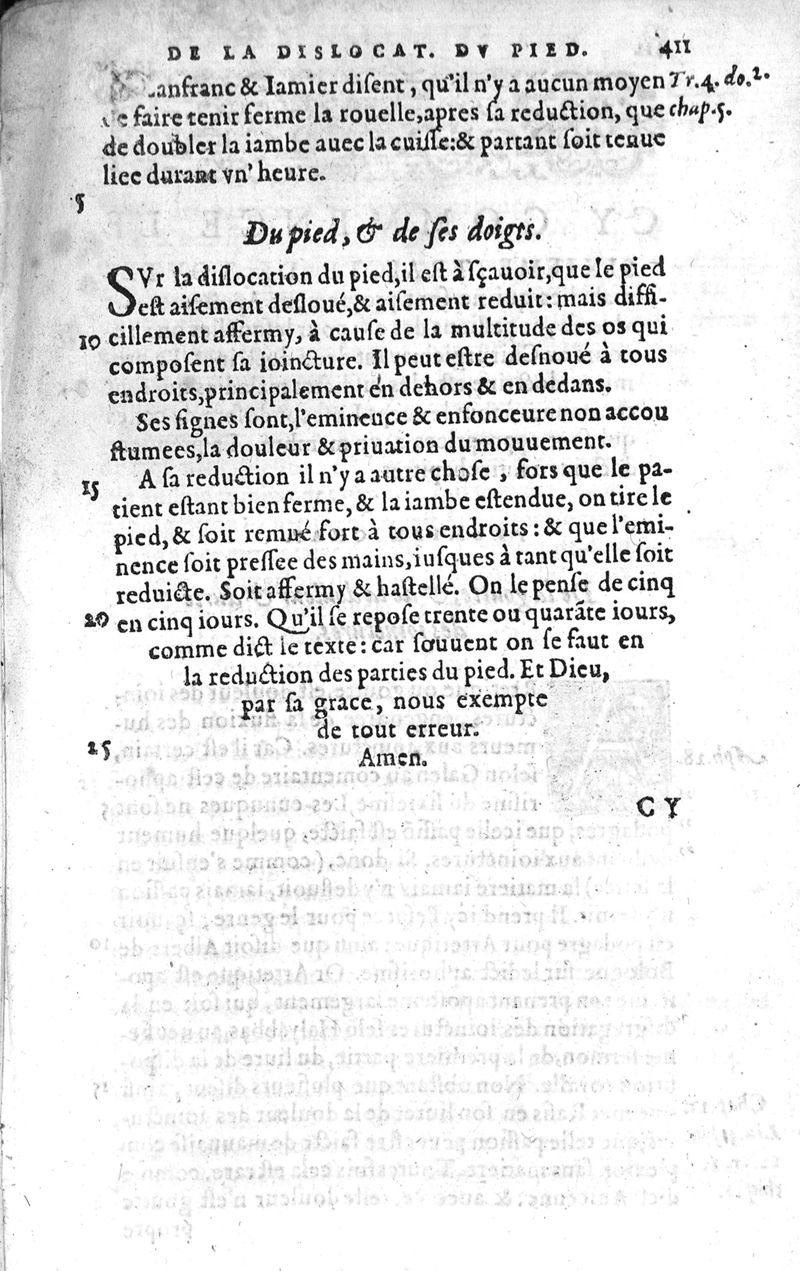 DE LA DISLOCAT. DV PIED. 411
Lanfranc & Iamier diſent, qu'il n'y a aucun moyen Tr.4.do.2.
de faire tenir ferme la rouelle,apres ſa reduction, que chap.5.
de doubler la iambe auec la cuiſſe:& partant ſoit tenue
liee durant vn' heure.
5
Du pied, & de ſes doigts.
SVr la diſlocation du pied,il eſt à ſçauoir,que le pied
eſt aiſement deſloué,& aiſement reduit: mais diffi-
10 cillement affermy, à cauſe de la multitude des os qui
compoſent ſa ioincture. Il peut eſtre deſnoué à tous
endroits,principalement en dehors & en dedans.
Ses ſignes ſont,l'eminence & enfonceure non accou
ſtumees,la douleur & priuation du mouuement.
15 A ſa reduction il n'y a autre choſe , fors que le pa-
tient eſtant bien ferme, & la iambe eſtendue, on tire le
pied, & ſoit remué fort à tous endroits: & que l'emi-
nence ſoit preſſee des mains,iuſques à tant qu'elle ſoit
reduicte. Soit affermy & haſtellé. On le penſe de cinq
20 en cinq iours. Qu'il ſe repoſe trente ou quarãte iours,
comme dict le texte: car ſouuent on ſe faut en
la reduction des parties du pied. Et Dieu,
par ſa grace, nous exempte
de tout erreur.
25 Amen.
CY